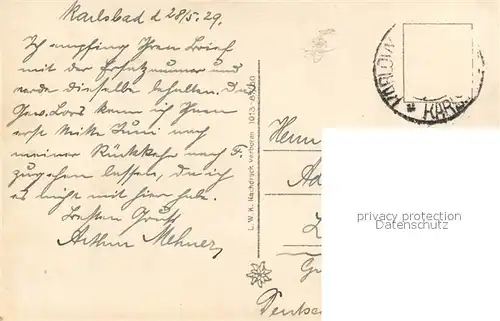 Karlsbad d 28/5. 29.
Ich empfing Ihren Brief
mit der Ersatznummer und
werde dieselbe behalten. Das
Gew. Los kann ich Ihnen
erst Mitte Juni nach
meiner Rückkehr nach F.
zugehen lassen, da ich
es nicht mit hier habe.
Besten Gruß
Arthur Mehner
L. W. K. Nachdruck verboten 1013
KARLOVY
KARLS
Herrn
privacy protection
Datenschutz